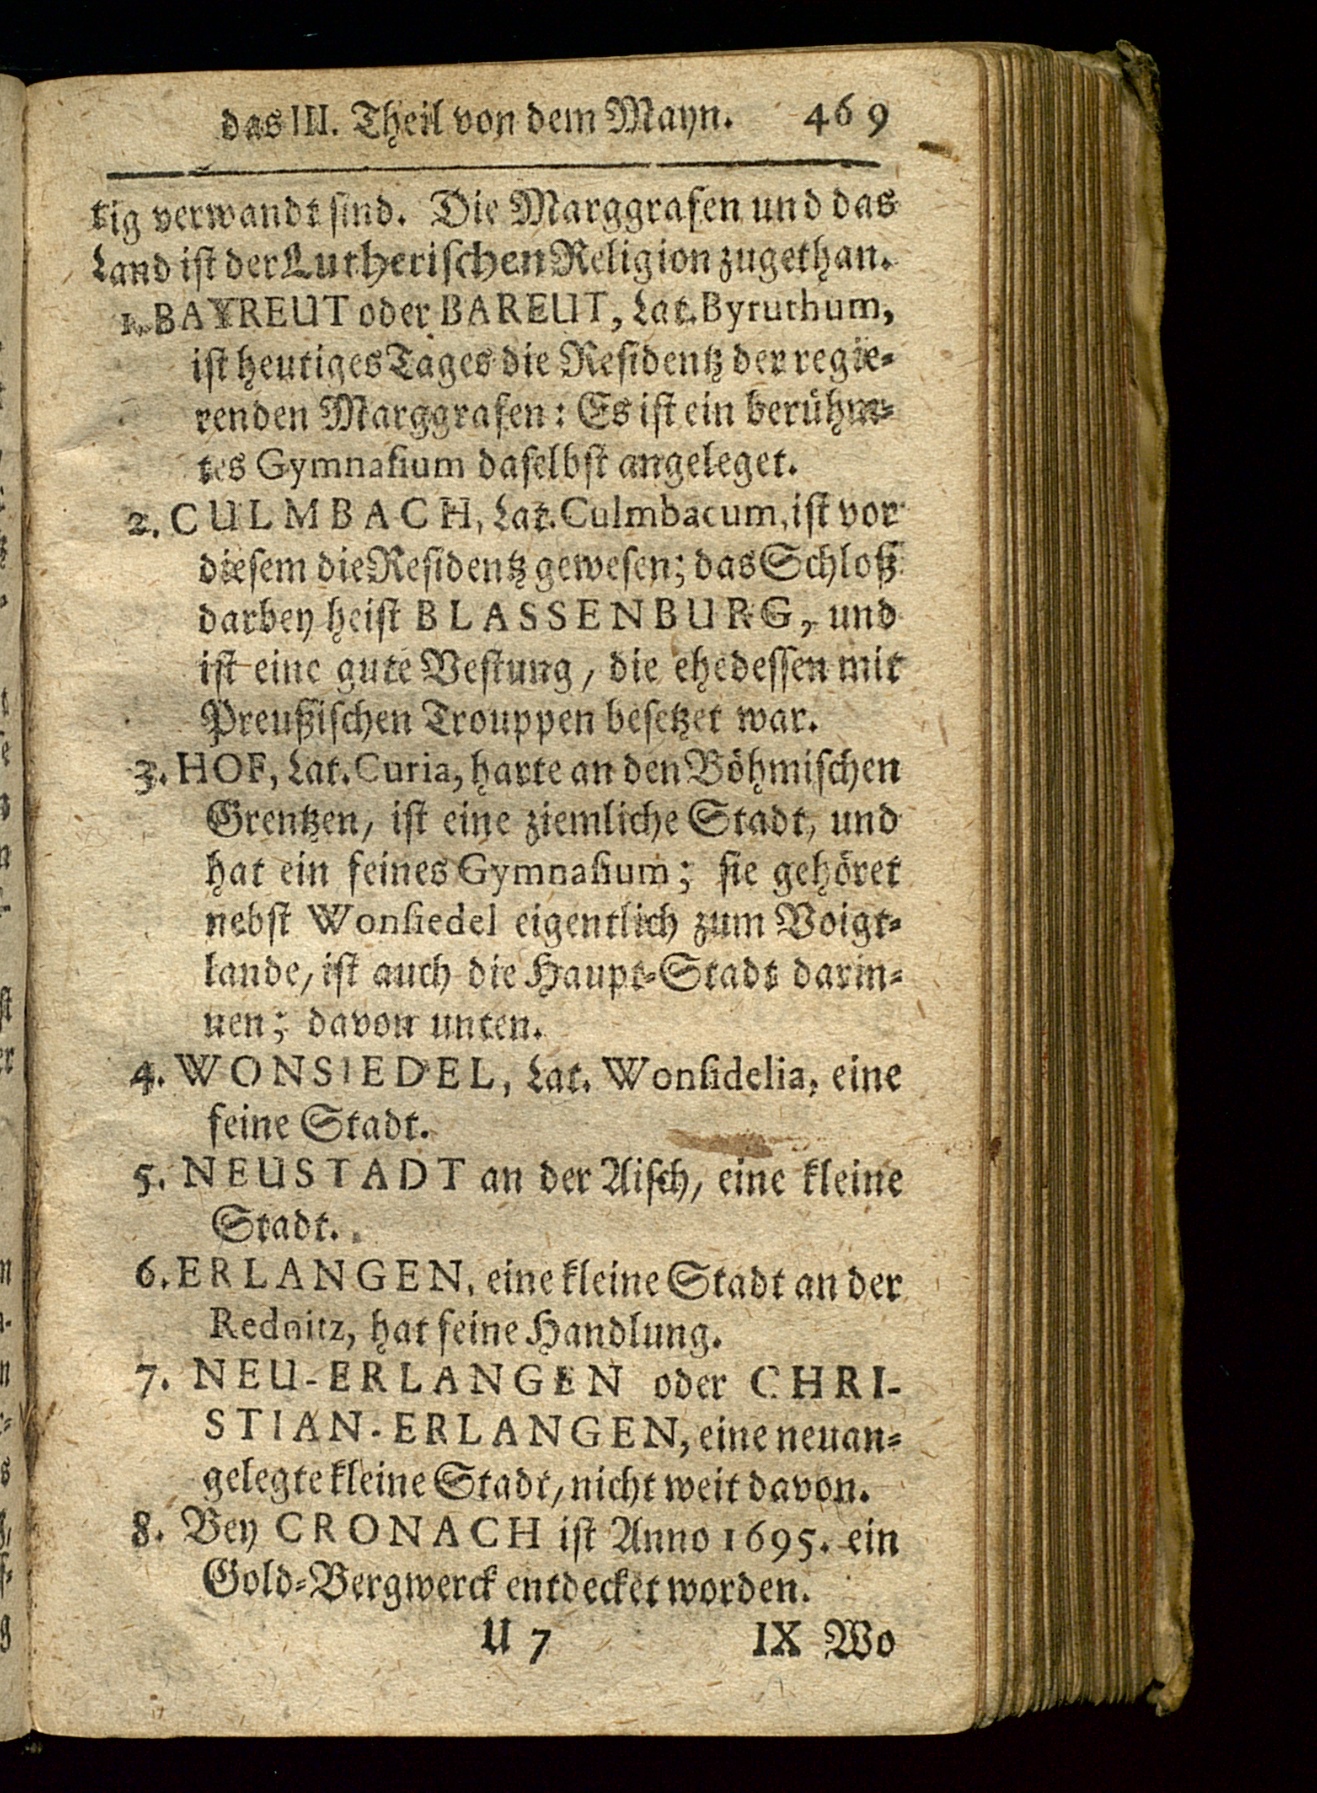 das III. Theil von dem Mayn. 469
tig verwandt sind. Die Marggrafen und das
Land ist der Lutherischen Religion zugethan.
1. BAYREUT oder BAREUT, Lat. Byruthum,
ist heutiges Tages die Residentz der regie-
renden Marggrafen: Es ist ein berühm-
tes Gymnasium daselbst angeleget.
2. CULMBACH, Lat. Culmbacum, ist vor
diesem die Residentz gewesen; das Schloß
darbey heist BLASSENBURG, und
ist eine gute Vestung, die ehedessen mit
Preußischen Trouppen besetzet war.
3. HOF, Lat. Curia, harte an den Böhmischen
Grentzen, ist eine ziemliche Stadt, und
hat ein feines Gymnasium; sie gehöret
nebst Wonsiedel eigentlich zum Voigt-
lande, ist auch die Haupt-Stadt darin-
nen; davon unten.
4. WONSIEDEL, Lat. Wonsidelia, eine
feine Stadt.
5. NEUSTADT an der Aisch, eine kleine
Stadt.
6. ERLANGEN, eine kleine Stadt an der
Rednitz, hat feine Handlung.
7. NEU-ERLANGEN oder CHRI-
STIAN-ERLANGEN, eine neuan-
gelegte kleine Stadt, nicht weit davon.
8. Bey CRONACH ist Anno 1695. ein
Gold-Bergwerck entdecket worden.
U 7 IX Wo